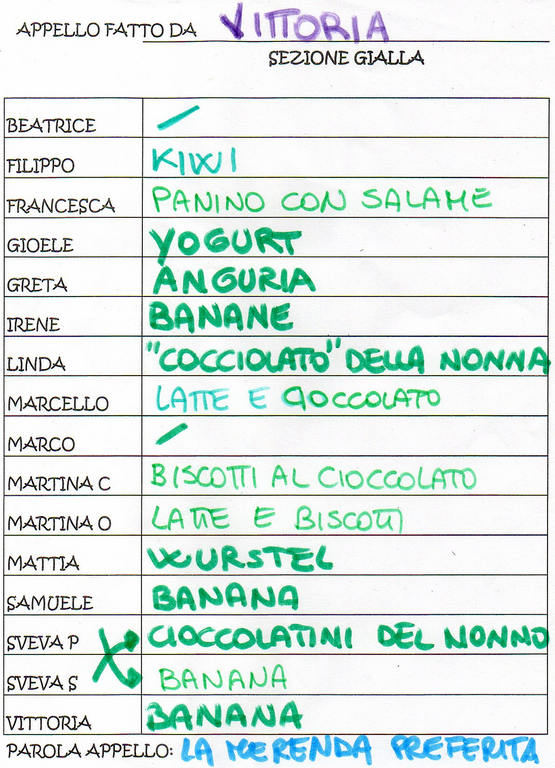 APPELLO FATTO DA VITTORIA
SEZIONE GIALLA
BEATRICE /
FILIPPO KIWI
FRANCESCA PANINO CON SALAME
GIOELE YOGURT
GRETA ANGURIA
IRENE BANANE
LINDA "COCCIOLATO" DELLA NONNA
MARCELLO LATTE E CIOCCOLATO
MARCO /
MARTINA C BISCOTTI AL CIOCCOLATO
MARTINA O LATTE E BISCOTTI
MATTIA WURSTEL
SAMUELE BANANA
SVEVA P CIOCCOLATINI DEL NONNO
SVEVA S BANANA
VITTORIA BANANA
PAROLA APPELLO: LA MERENDA PREFERITA